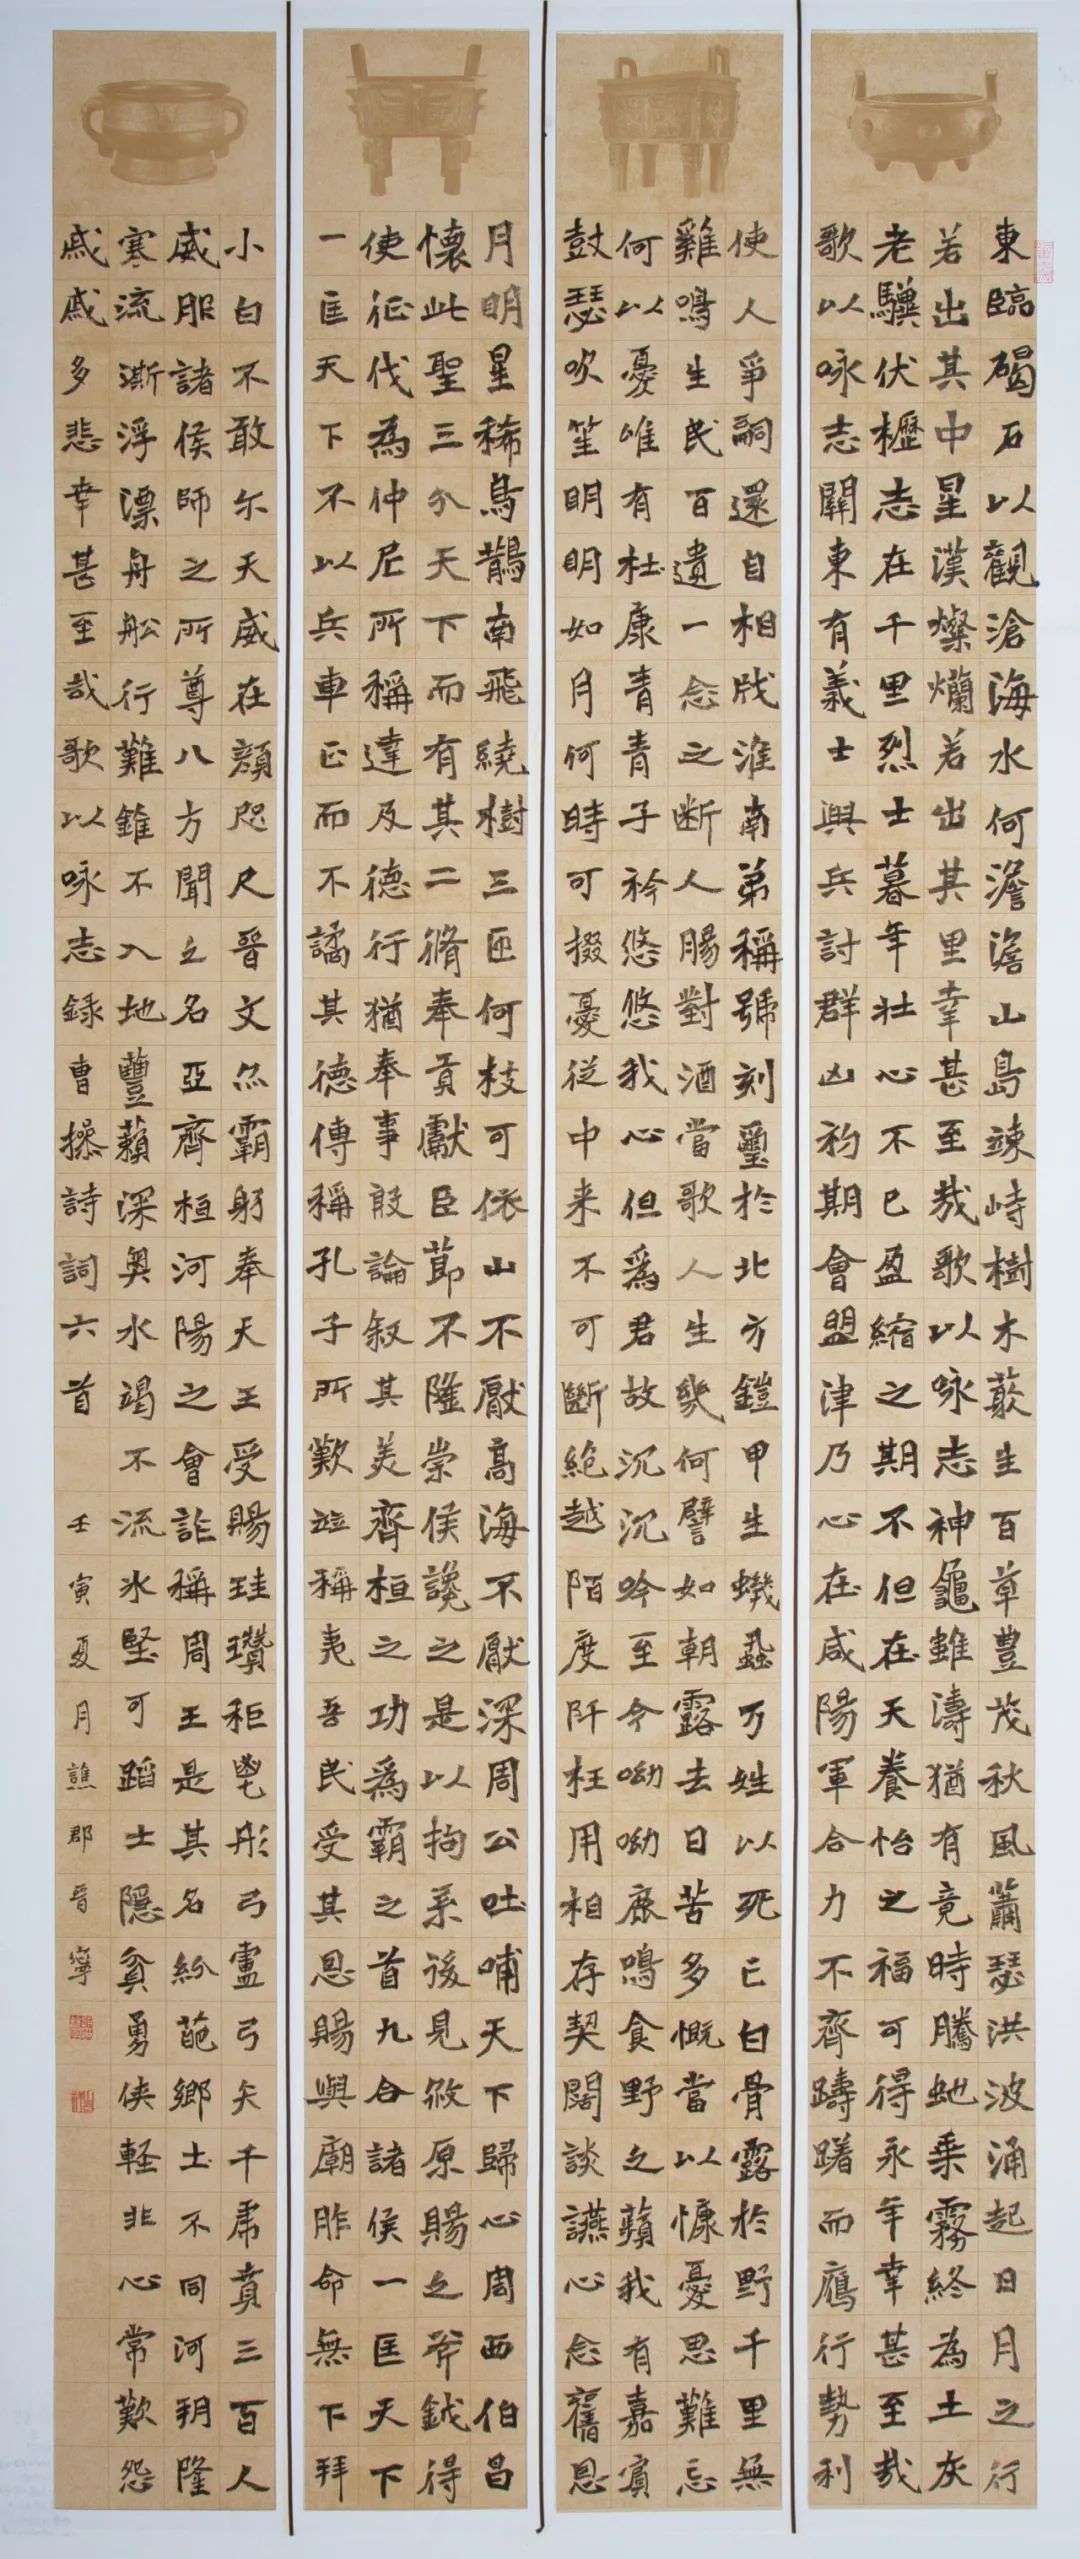 東臨碣石以觀滄海水何澹澹山島竦峙樹木菆生百草豊茂秋風蕭瑟洪波涌起日月之行
若出其中星漢燦爛若出其里幸甚至哉歌以咏志神龜雖濤猶有竟時騰虵乗霧終為土灰
老驥伏櫪志在千里烈士暮年壯心不已盈縮之期不但在天養怡之福可得永年幸甚至哉
歌以咏志關東有義士興兵討群凶初期會盟津乃心在咸陽軍合力不齊躊躇而鴈行勢利
使人爭嗣還自相戕淮南弟稱號刻璽於北方鎧甲生蟣蝨万姓以死亡白骨露於野千里無
雞鳴生民百遺一念之断人腸對酒當歌人生幾何譬如朝露去日苦多慨當以慷憂思難忘
何以憂唯有杜康青青子衿悠悠我心但爲君故沉沉吟至今呦呦鹿鳴食野之蘋我有嘉賓
鼓瑟吹笙明明如月何時可掇憂従中来不可斷絶越陌度阡枉用相存契闊談讌心念舊恩
月明星稀烏鵲南飛繞樹三匝何枝可依山不厭高海不厭深周公吐哺天下歸心周西伯昌
懷此聖三分天下而有其二脩奉貢獻臣節不隆崇侯讒之是以拘系後見赦原賜之斧鉞得
使征伐為仲尼所稱達及德行猶奉事殷論叙其美齊桓之功爲霸之首九合諸侯一匡天下
一匡天下不以兵車正而不譎其德傳稱孔子所歎竝稱夷吾民受其恩賜與廟胙命無下拜
小白不敢尓天威在顏咫尺晉文亦霸躬奉天王受賜珪瓚秬鬯彤弓盧弓矢千虎賁三百人
威服諸侯師之所尊八方聞之名亞齊桓河陽之會詐稱周王是其名紛葩鄉土不同河朔隆
寒流澌浮漂舟舩行難錐不入地蘴藾深奥水竭不流氷堅可蹈士隱貧勇侠軽非心常歎怨
戚戚多悲幸甚至哉歌以咏志録曹操詩詞六首 壬寅夏月譙郡晉寧